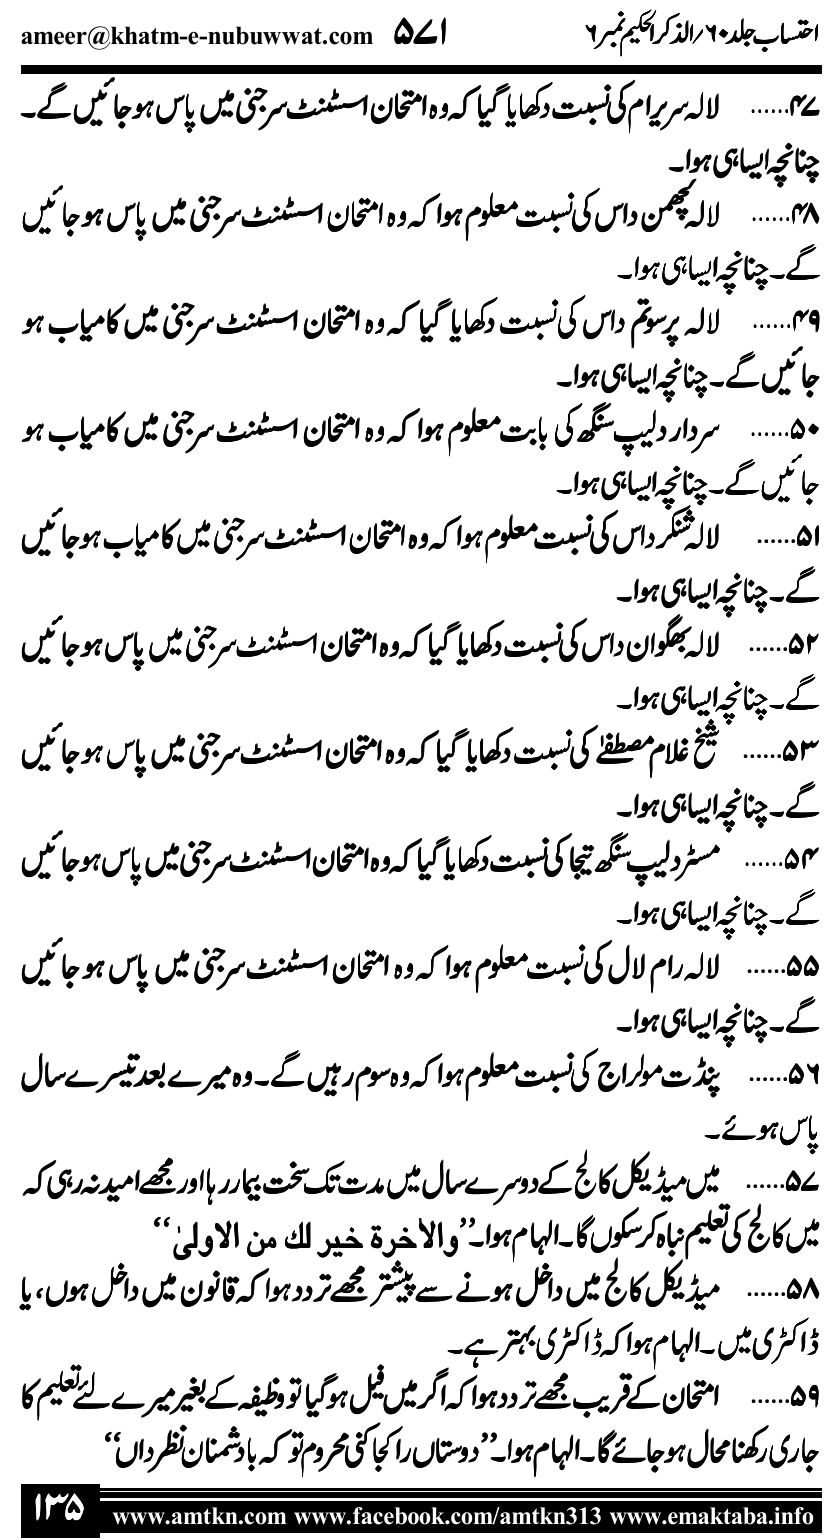 احتساب جلد ۶۰ / الذکر الحکیم نمبر ۶
۵۷۱
ameer@khatm-e-nubuwwat.com
۴۷...... لالہ سریرام کی نسبت دکھایا گیا کہ وہ امتحان اسسٹنٹ سرجنی میں پاس ہو جائیں گے۔
چنانچہ ایسا ہی ہوا۔
۴۸...... لالہ لچھمن داس کی نسبت معلوم ہوا کہ وہ امتحان اسسٹنٹ سرجنی میں پاس ہو جائیں
گے۔ چنانچہ ایسا ہی ہوا۔
۴۹...... لالہ پرسوتم داس کی نسبت دکھایا گیا کہ وہ امتحان اسسٹنٹ سرجنی میں کامیاب ہو
جائیں گے۔ چنانچہ ایسا ہی ہوا۔
۵۰...... سردار دلیپ سنگھ کی بابت معلوم ہوا کہ وہ امتحان اسسٹنٹ سرجنی میں کامیاب ہو
جائیں گے۔ چنانچہ ایسا ہی ہوا۔
۵۱...... لالہ شنکر داس کی نسبت معلوم ہوا کہ وہ امتحان اسسٹنٹ سرجنی میں کامیاب ہو جائیں
گے۔ چنانچہ ایسا ہی ہوا۔
۵۲...... لالہ بھگوان داس کی نسبت دکھایا گیا کہ وہ امتحان اسسٹنٹ سرجنی میں پاس ہو جائیں
گے۔ چنانچہ ایسا ہی ہوا۔
۵۳...... شیخ غلام مصطفےٰ کی نسبت دکھایا گیا کہ وہ امتحان اسسٹنٹ سرجنی میں پاس ہو جائیں
گے۔ چنانچہ ایسا ہی ہوا۔
۵۴...... مسٹر دلیپ سنگھ تیجا کی نسبت دکھایا گیا کہ وہ امتحان اسسٹنٹ سرجنی میں پاس ہو جائیں
گے۔ چنانچہ ایسا ہی ہوا۔
۵۵...... لالہ رام لال کی نسبت معلوم ہوا کہ وہ امتحان اسسٹنٹ سرجنی میں پاس ہو جائیں
گے۔ چنانچہ ایسا ہی ہوا۔
۵۶...... پنڈت مولراج کی نسبت معلوم ہوا کہ وہ سوم رہیں گے۔ وہ میرے بعد تیسرے سال
پاس ہوئے۔
۵۷...... میں میڈیکل کالج کے دوسرے سال میں مدت تک سخت بیمار رہا اور مجھے امید نہ رہی کہ
میں کالج کی تعلیم نباہ کر سکوں گا۔ الہام ہوا۔ ’’والاخرۃ خیر لک من الاولیٰ‘‘
۵۸...... میڈیکل کالج میں داخل ہونے سے پیشتر مجھے تردد ہوا کہ قانون میں داخل ہوں، یا
ڈاکٹری میں۔ الہام ہوا کہ ڈاکٹری بہتر ہے۔
۵۹...... امتحان کے قریب مجھے تردد ہوا کہ اگر میں فیل ہو گیا تو وظیفہ کے بغیر میرے لئے تعلیم کا
جاری رکھنا محال ہو جائے گا۔ الہام ہوا۔ ’’دوستاں را کجا کنی محروم تو کہ بادشمنان نظر داں‘‘
۱۳۵
www.amtkn.com www.facebook.com/amtkn313 www.emaktaba.info